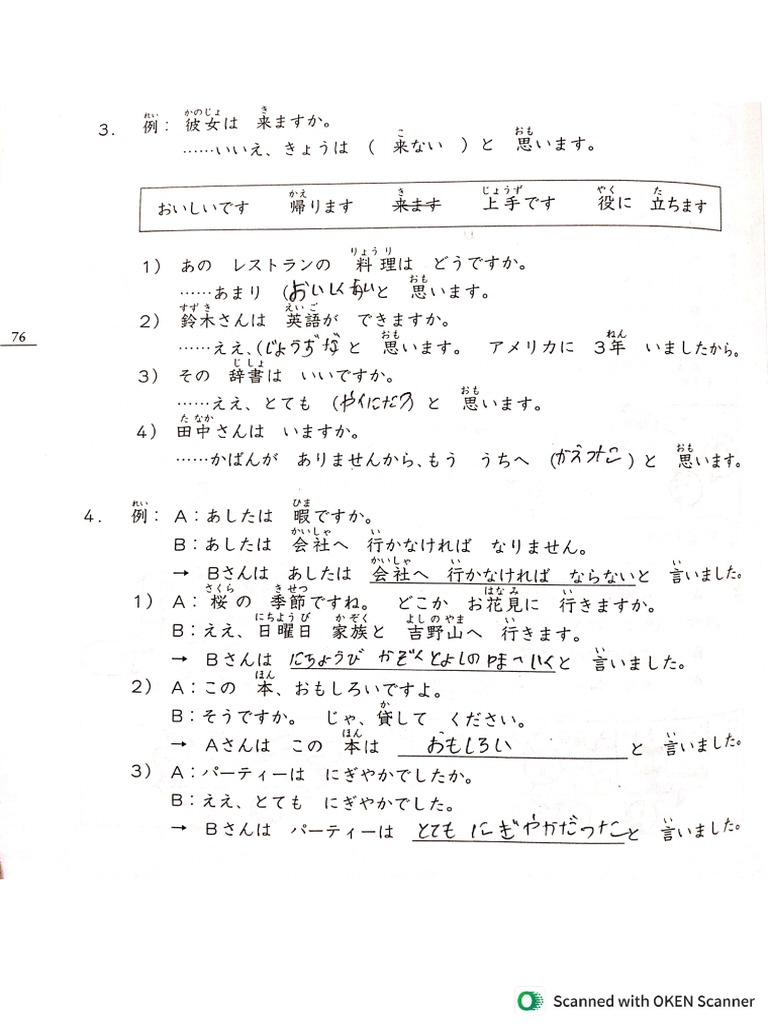 3. 例： 彼女は 来ますか。
……いいえ、きょうは （ 来ない ）と 思います。
おいしいです 帰ります 来ます 上手です 役に 立ちます
1） あの レストランの 料理は どうですか。
……あまり （おいしくないと 思います。
2） 鈴木さんは 英語が できますか。
……ええ、（じょうぢな と 思います。 アメリカに 3年 いましたから。
3） その 辞書は いいですか。
……ええ、とても （やくにだつ）と 思います。
76
4） 田中さんは いますか。
……かばんが ありませんから、もう うちへ （かえ）と 思います。
4. 例： A：あしたは 暇ですか。
B：あしたは 会社へ 行かなければ なりません。
→ Bさんは あしたは 会社へ 行かなければ ならないと 言いました。
1） A：桜の 季節ですね。 どこか お花見に 行きますか。
B：ええ、日曜日 家族と 吉野山へ 行きます。
→ Bさんは にちょうび かぞくとよしのやまへいくと 言いました。
2） A：この 本、おもしろいですよ。
B：そうですか。 じゃ、貸して ください。
→ Aさんは この 本は おもしろい と 言いました。
3） A：パーティーは にぎやかでしたか。
B：ええ、とても にぎやかでした。
→ Bさんは パーティーは とても にぎやかだったと 言いました。
Scanned with OKEN Scanner